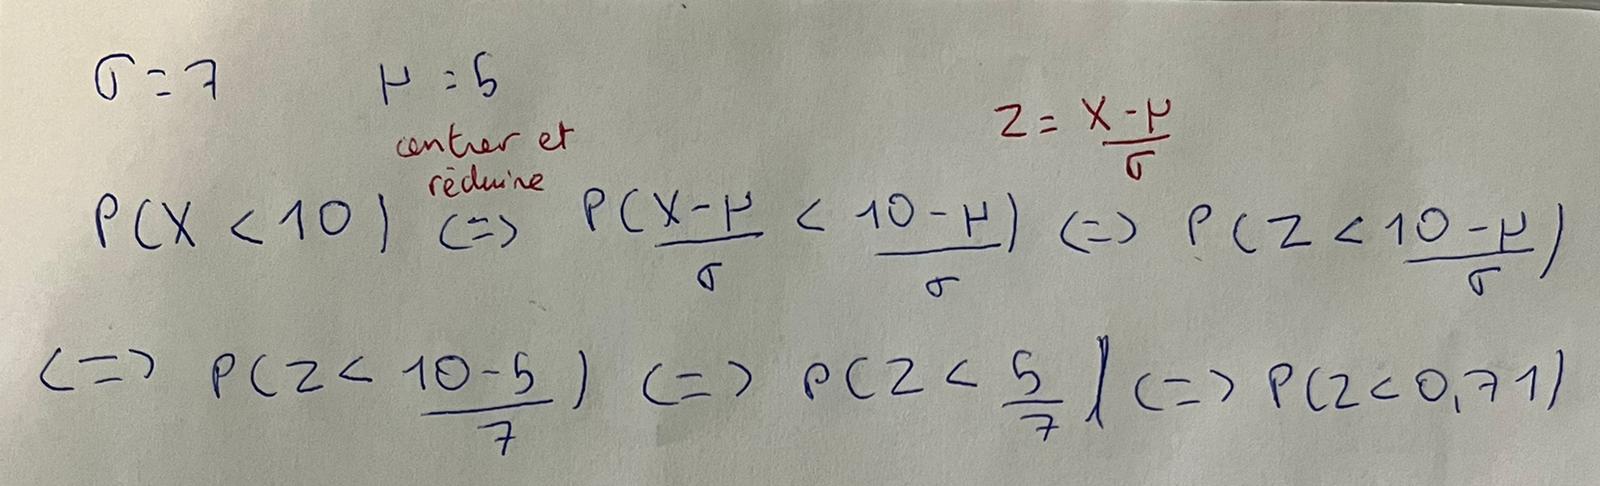 σ = 7 μ = 5
centrer et
réduire
Z = X - μ / σ
P(X < 10) <=> P(X - μ / σ < 10 - μ / σ) <=> P(Z < 10 - μ / σ)
<=> P(Z < 10 - 5 / 7) <=> P(Z < 5 / 7) <=> P(Z < 0,71)